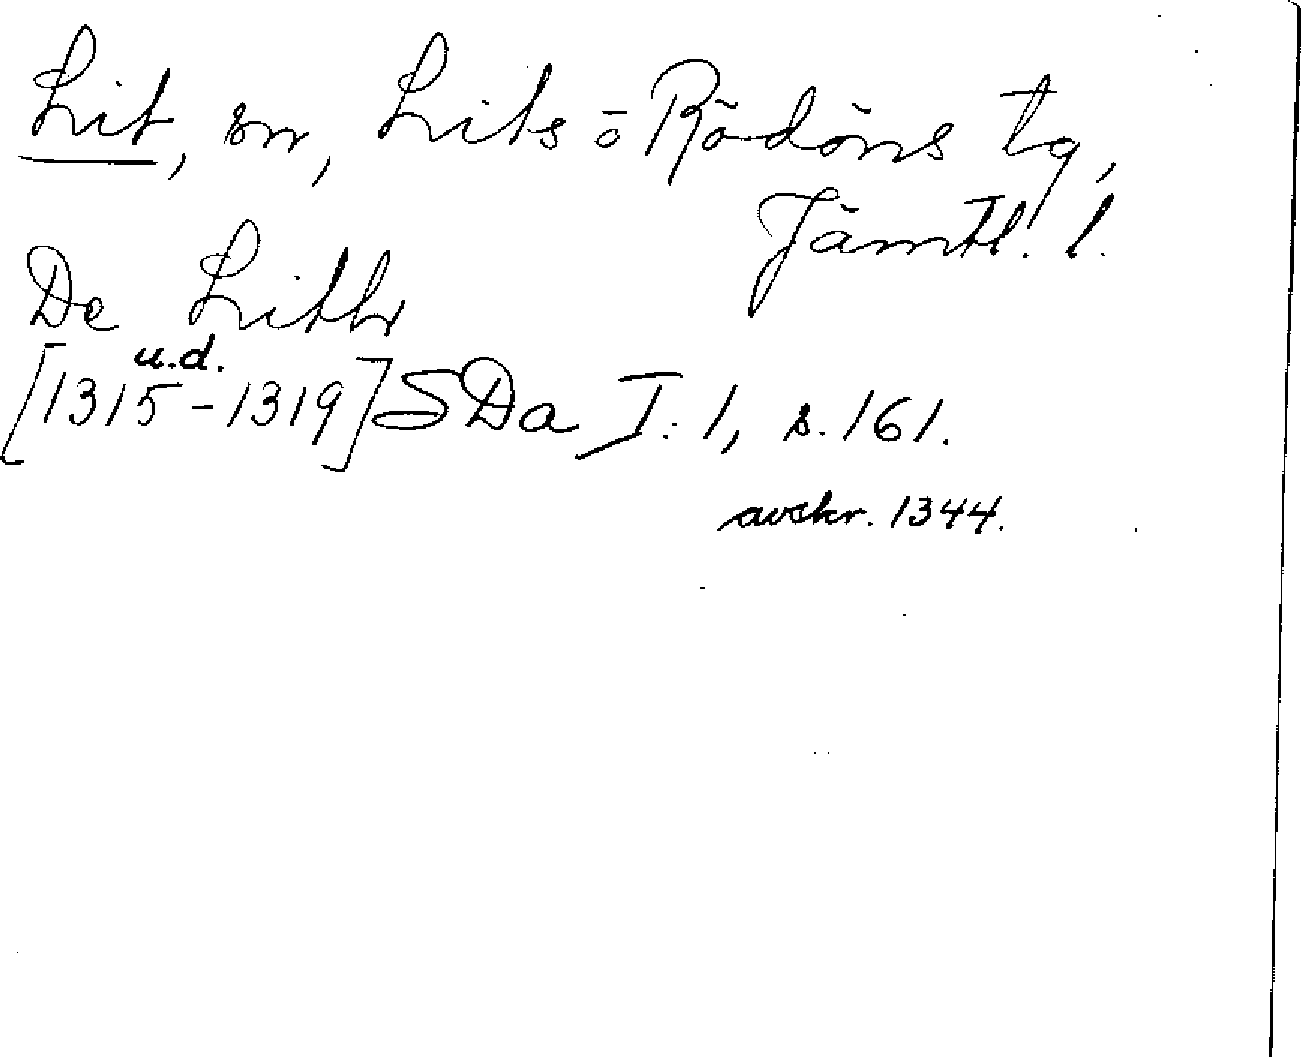 Lit, sn, Lits o Rödöns tg,
Jämtl. l.
De Lithr
u.d.
[1315-1319] SDa I:1, s. 161.
avskr. 1344.